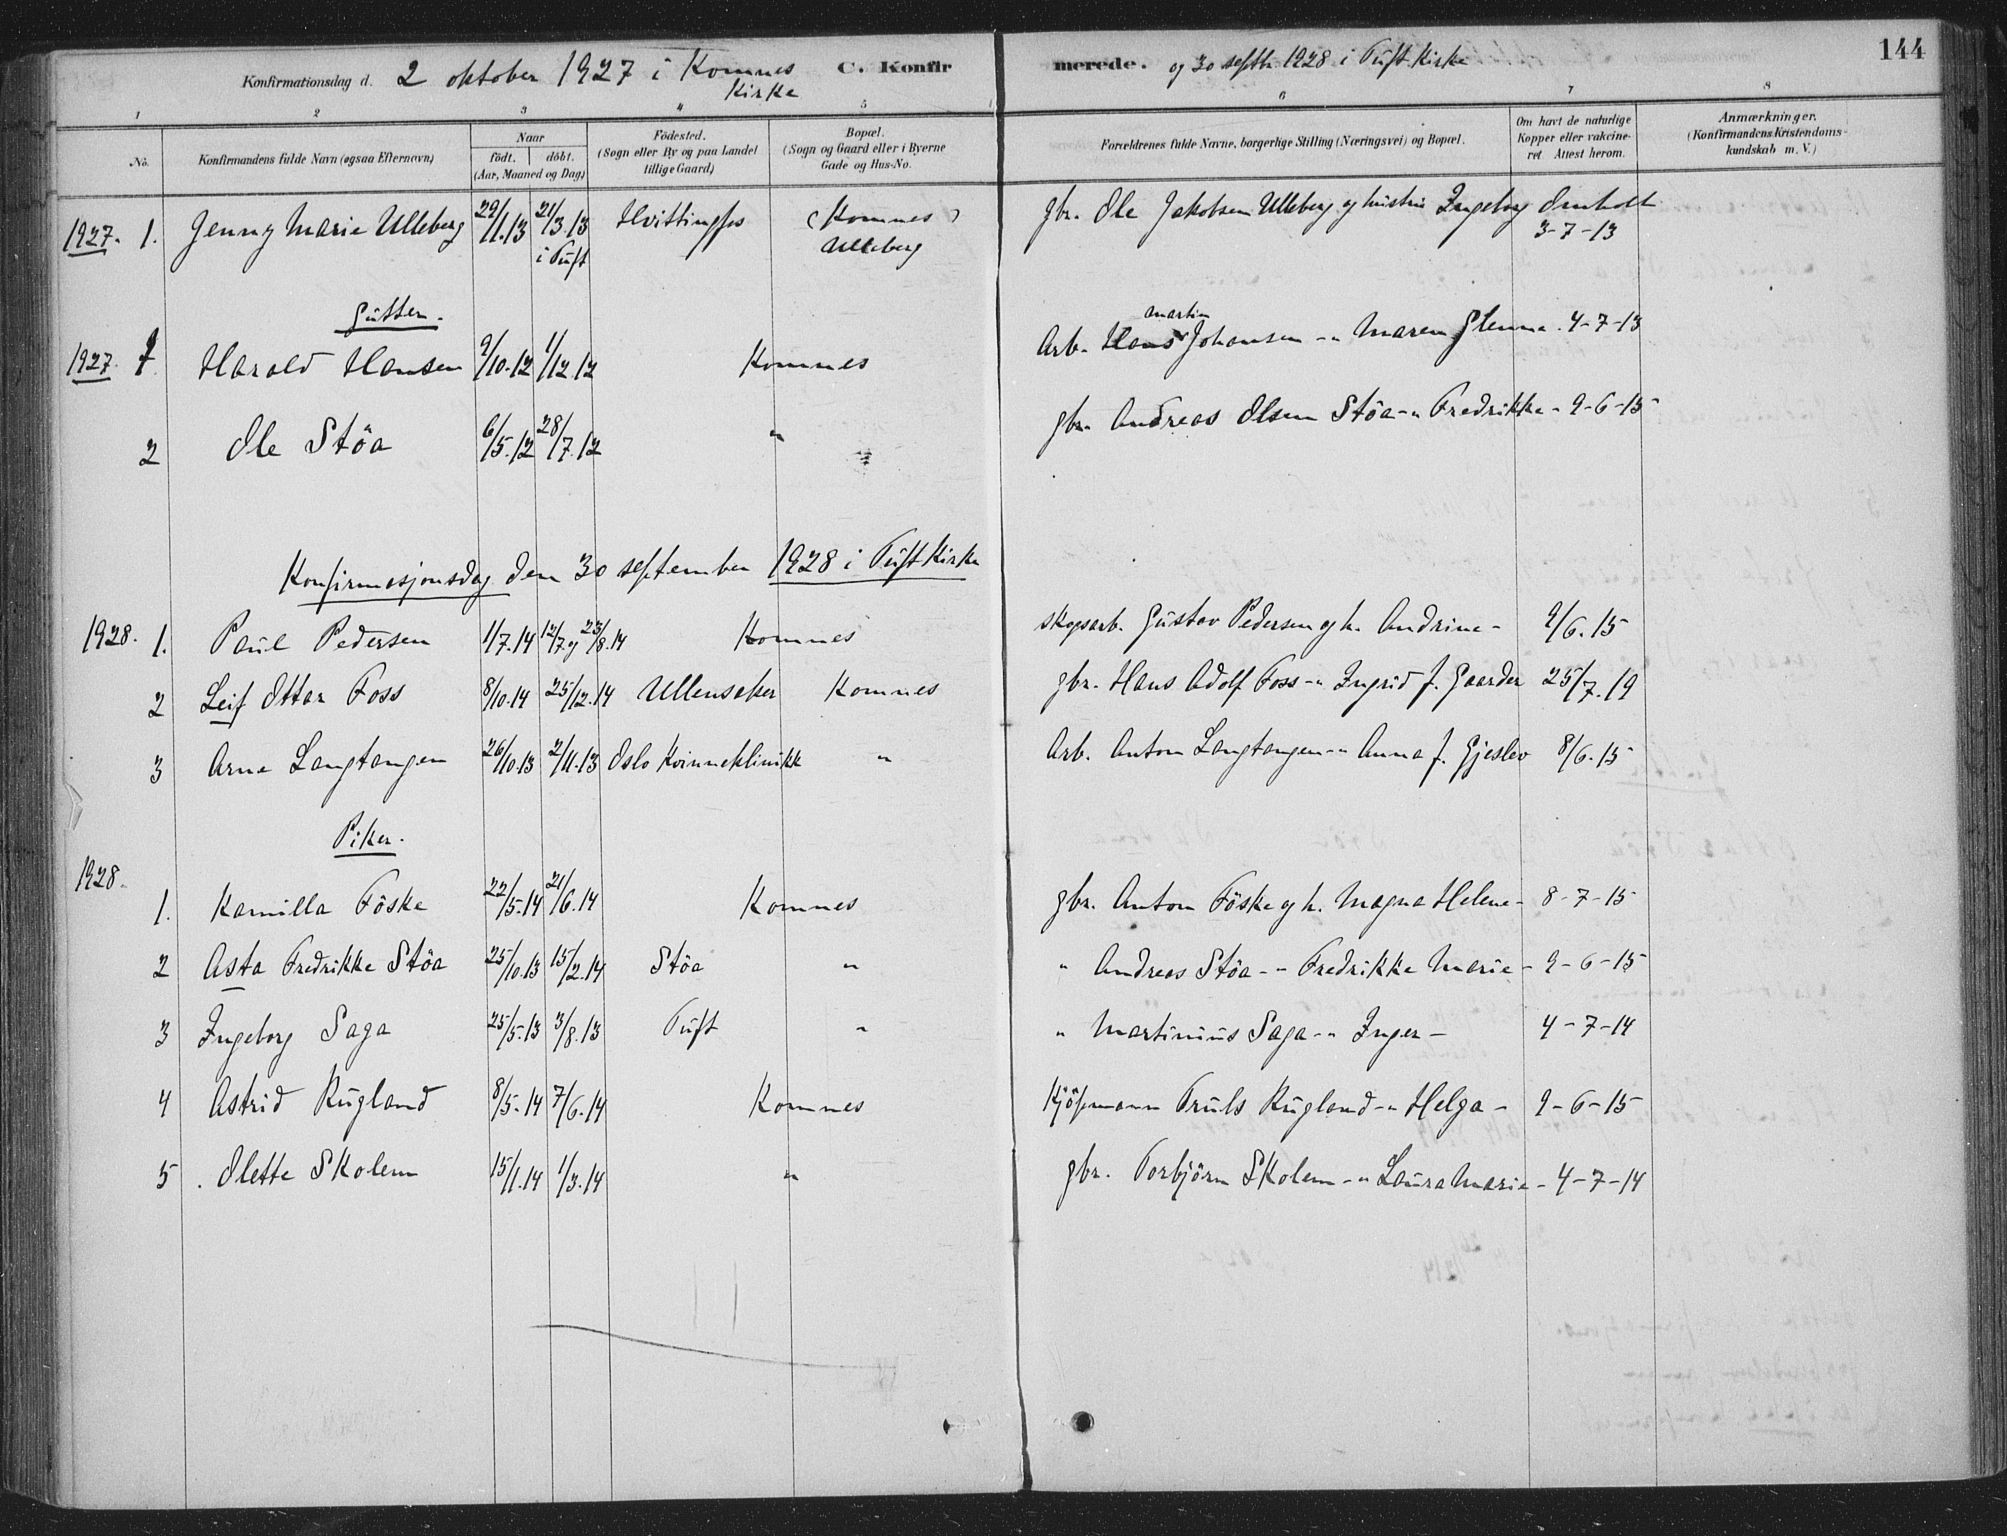 144
Konfirmationsdag d. 2 oktober 1927 i Komnes Kirke C. Konfirmerede. og 30 septbr. 1928 i Tuft Kirke
1 2 3 " 5 6 7 8
No. Konfirmandens fulde Navn (ogsaa Efternavn) Naar födt. döbt. (Aar, Maaned og Dag) Födested. (Sogn eller By og paa Landet tillige Gaard) Bopæl. (Sogn og Gaard eller i Byerne Gade og Hus-No. Forældrenes fulde Navne, borgerlige Stilling (Næringsvei) og Bopæl. Om havt de naturlige Kopper eller vakcineret Attest herom. Anmærkninger. (Konfirmandens Kristendomskundskab m. V.)
1927. 1. Jenny Marie Ulleberg 29/1.13 21/3.13 i Tuft Hvittingfos (Komnes) Ulleberg gbr. Ole Jakobsen Ulleberg og hustru Ingeborg Omholt 3-7-13
Gutter.
1927. 1 Harald Hansen 9/10.12 1/12.12 Komnes Arb. Hans Martin Johansen -"- Maren Glenna. 4-7-13
2 Ole Stöa 6/5.12 28/7.12 " gbr. Andreas Olsen Stöa -"- Fredrikke - 9-6-15
Konfirmasjonsdag den 30 september 1928 i Tuft Kirke
1928. 1. Paul Pedersen 1/7.14 12/7 og 23/8.14 Komnes skogsarb. Gustav Pedersen og h. Andrine - 9/6.15
2 Leif Ottar Foss 8/10.14 25/12.14 Ullensaker Komnes gbr. Hans Adolf Foss -"- Ingrid f. Gaarder 25/7.19
3 Arne Langtangen 26/10.13 2/11.13 Oslo Kvinneklinikk " Arb. Anton Langtangen -"- Anna f. Gjeslev 8/6.15
Piker.
1928.
1. Kamilla Föske 22/5.14 21/6.14 Komnes gbr. Anton Föske og h. Magna Helene - 8-7-15
2 Asta Fredrikke Stöa 25/10.13 15/2.14 Stöa " " Andreas Stöa -"- Fredrikke Marie - 9-6-15
3 Ingeborg Saga 25/5.13 3/8.13 Tuft " " Martinius Saga -"- Inger - 4-7-14
4 Astrid Rugland 8/5.14 7/6.14 Komnes Kjöpmann Truls Rugland -"- Helga - 9-6-15
5. Olette Skolem 15/1.14 1/3.14 " gbr. Torbjörn Skolem -"- Laura Marie - 4-7-14